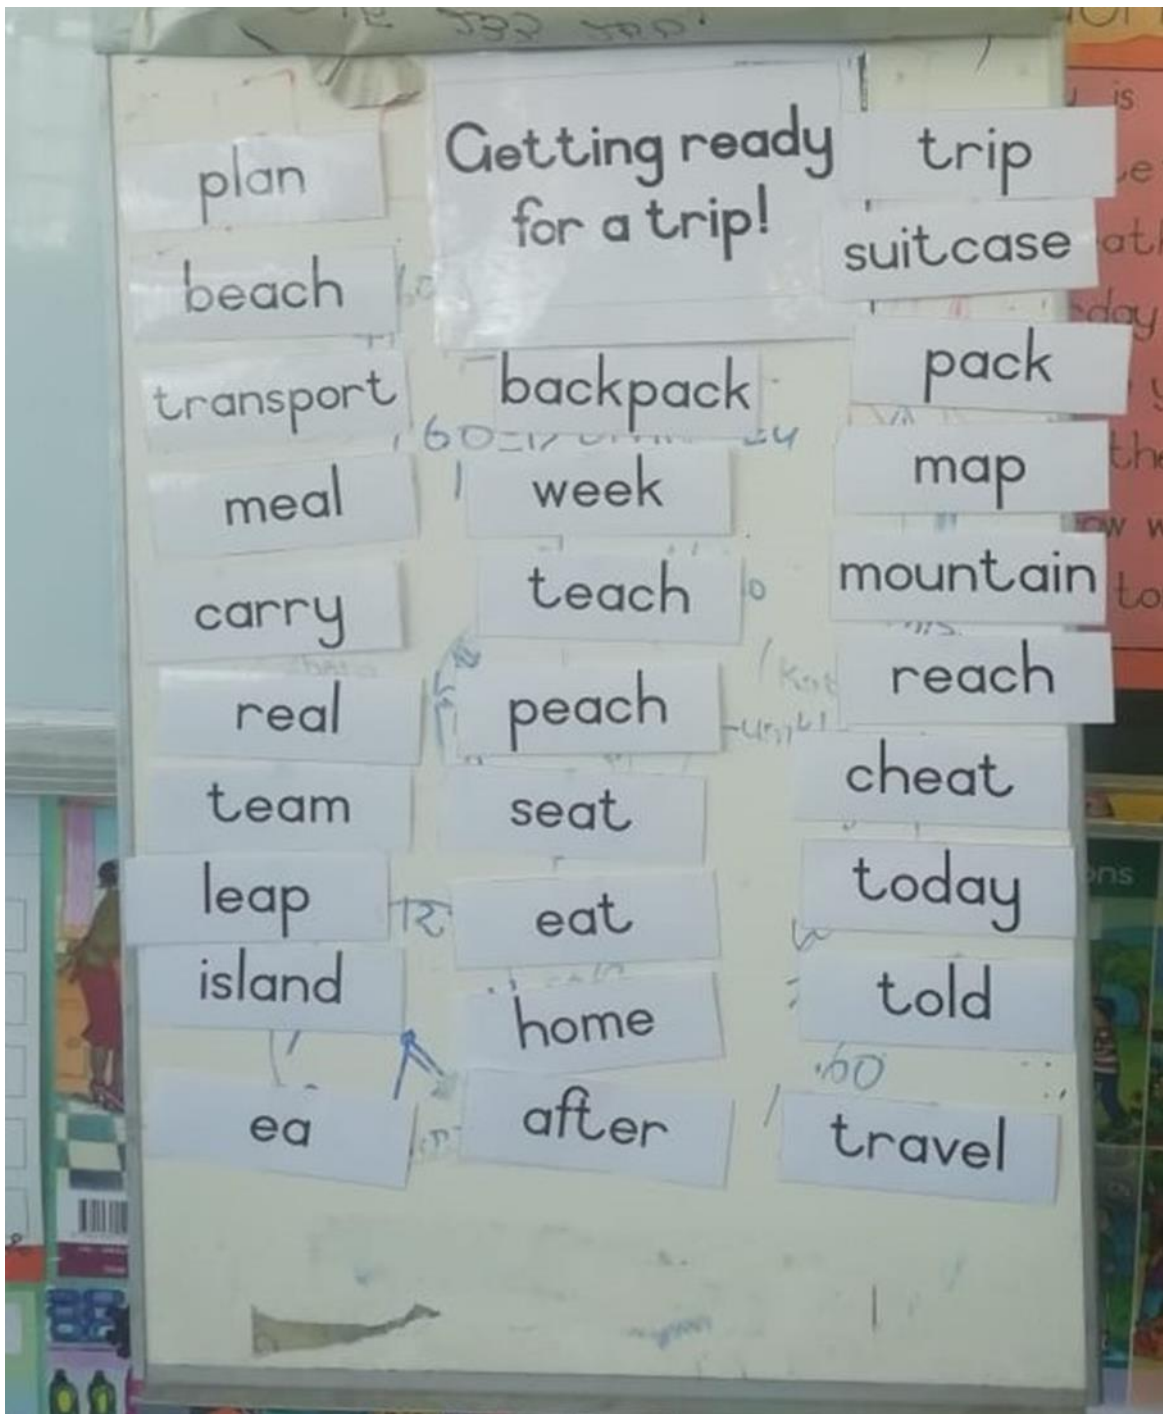 Getting ready
for a trip!
plan
beach
transport
meal
carry
real
team
leap
island
ea
backpack
week
teach
peach
seat
eat
home
after
trip
suitcase
pack
map
mountain
reach
cheat
today
told
travel
60
is